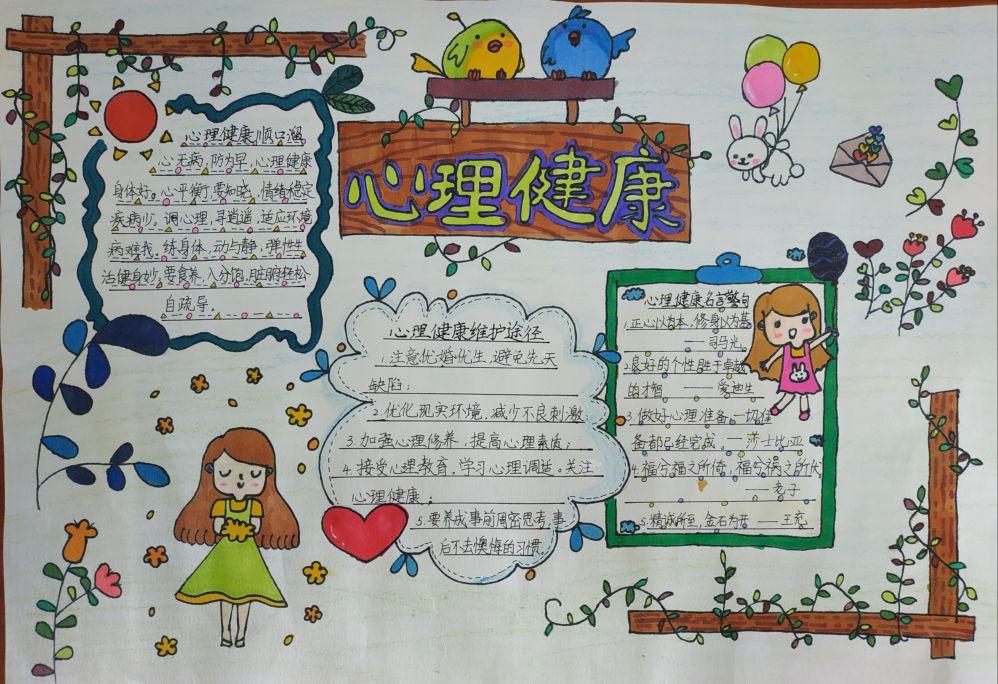 心理健康
心理健康顺口溜
心无病,防为早,心理健康
身体好。心平衡,要知晓,情绪稳定
疾病少,调心理,寻逍遥,适应环境
病难我,练身体,动与静,弹性生
活健身妙,要食养,八分饱,脏腑轻松
自疏导.
心理健康维护途径
1.注意优婚优生,避免先天
缺陷;
2.优化现实环境,减少不良刺激;
3.加强心理修养,提高心理素质;
4.接受心理教育,学习心理调适。关注
心理健康;
5.要养成事前周密思考,事
后不去懊悔的习惯
心理健康名言警句
1.正心以为本,修身以为基
——司马光。
2.良好的个性胜于卓越
的才智 ——爱迪生
3.做好心理准备,一切准
备都已经完成。—莎士比亚
4.福兮福之所倚,福兮祸之所伏
——老子
5.精诚所至,金石为开 ——王充